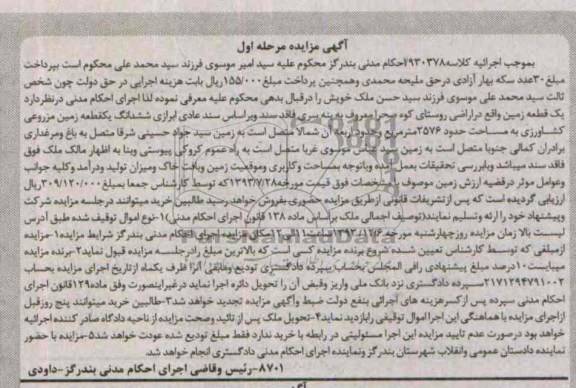 آگهی مزایده مرحله اول
بموجب اجرائیه کلاسه۹۳۰۳۷۸احکام مدنی بندرگز محکوم علیه سید امیر موسوی فرزند سید محمد علی محکوم است بپرداخت
مبلغ۳۰عدد سکه بهار آزادی درحق ملیحه محمدی وهمچنین پرداخت مبلغ۱۵۵/۰۰۰ریال بابت هزینه اجرایی در حق دولت چون شخص
ثالث سید محمد علی موسوی فرزند سید حسن ملک خویش را درقبال بدهی محکوم علیه معرفی نموده لذا اجرای احکام مدنی درنظردارد
یک قطعه زمین واقع دراراضی روستای کوه صحرا معروف به بنه سری فاقد سند وبراساس سند عادی ابرازی ششدانگ یکقطعه زمین مزروعی
کشاورزی به مساحت حدود ۲۵۷۶مترمربع وحدود اربعه آن شمالا متصل است به زمین سید جواد حسینی شرقا متصل به باغ ومرغداری
برادران کمالی جنوبا متصل است به زمین سید عباس موسوی غربا متصل است به راه عموم کروکی پیوستی وبنا به اظهار مالک ملک فوق
فاقد سند میباشد وبابررسی تحقیقات بعمل آمده وباتوجه بمساحت وکاربری وموقعیت زمین وبافت خاک ومیزان تولید ودرآمد وکلیه جوانب
وعوامل موثر درقضیه ارزش زمین موصوف با مشخصات فوق قیمت مورخه۱۳۹۳/۷/۲۸که توسط کارشناس جمعا بمبلغ ۳۰۹/۱۲۰/۰۰۰ریال
ارزیابی گردیده است که پس ازتشریفات قانونی ازطریق مزایده حضوری بفروش خواهد رسید طالبین خرید میتوانند درجلسه مزایده شرکت
وپیشنهاد خود را ارئه وتسلیم نمایند(توصیف اجمالی ملک براساس ماده ۱۳۸ قانون اجرای احکام مدنی)۱-نوع اموال توقیف شده طبق آدرس
لیست بالا زمان مزایده روزچهارشنبه مورخه ۱۳۹۳/۱۱/۶ ساعت ۱۱الی۱۲مکان مزایده اجرای احکام مدنی بندرگز شرایط مزایده۱-مزایده
ازمبلغی که توسط کارشناس تعیین شده شروع برنده مزایده کسی است که بالاترین مبلغ رادرجلسه مزایده قبول نماید۲-برنده مزایده
میبایست۱۰درصد مبلغ پیشنهادی رافی المجلس بحساب سپرده دادگستری تودیع ومابقی آنرا ظرف یکماه ازتاریخ اجرای مزایده بحساب
۲۱۷۱۲۹۴۷۹۱۰۰۲سپرده دادگستری نزد بانک ملی واریز وقبض آن را تحویل دائره اجرا نماید درغیراینصورت وفق ماده۱۲۹قانون اجرای
احکام مدنی سپرده پس ازکسرهزینه های اجرائی بنفع دولت ضبط وآگهی مزایده تجدید خواهد شد۳-طالبین خرید میتوانند پنج روزقبل
ازاجرای مزایده با هماهنگی این اجرا اموال توقیفی رابازدید نماید۴-تحویل ملک پس از تائید وصحت مزایده از ناحیه دادگاه صادر کننده اجرائیه
خواهد بود درصورت عدم تایید مزایده این اجرا مسئولیتی در رابطه با خرید ندارد فقط مبلغ تودیع شده عودت خواهد شد۵-مزایده با حضور
نماینده دادستان عمومی وانقلاب شهرستان بندرگز ونماینده اجرای احکام مدنی دادگستری انجام خواهد شد.
۸۷۰۱-رئیس وقاضی اجرای احکام مدنی بندرگز-داودی